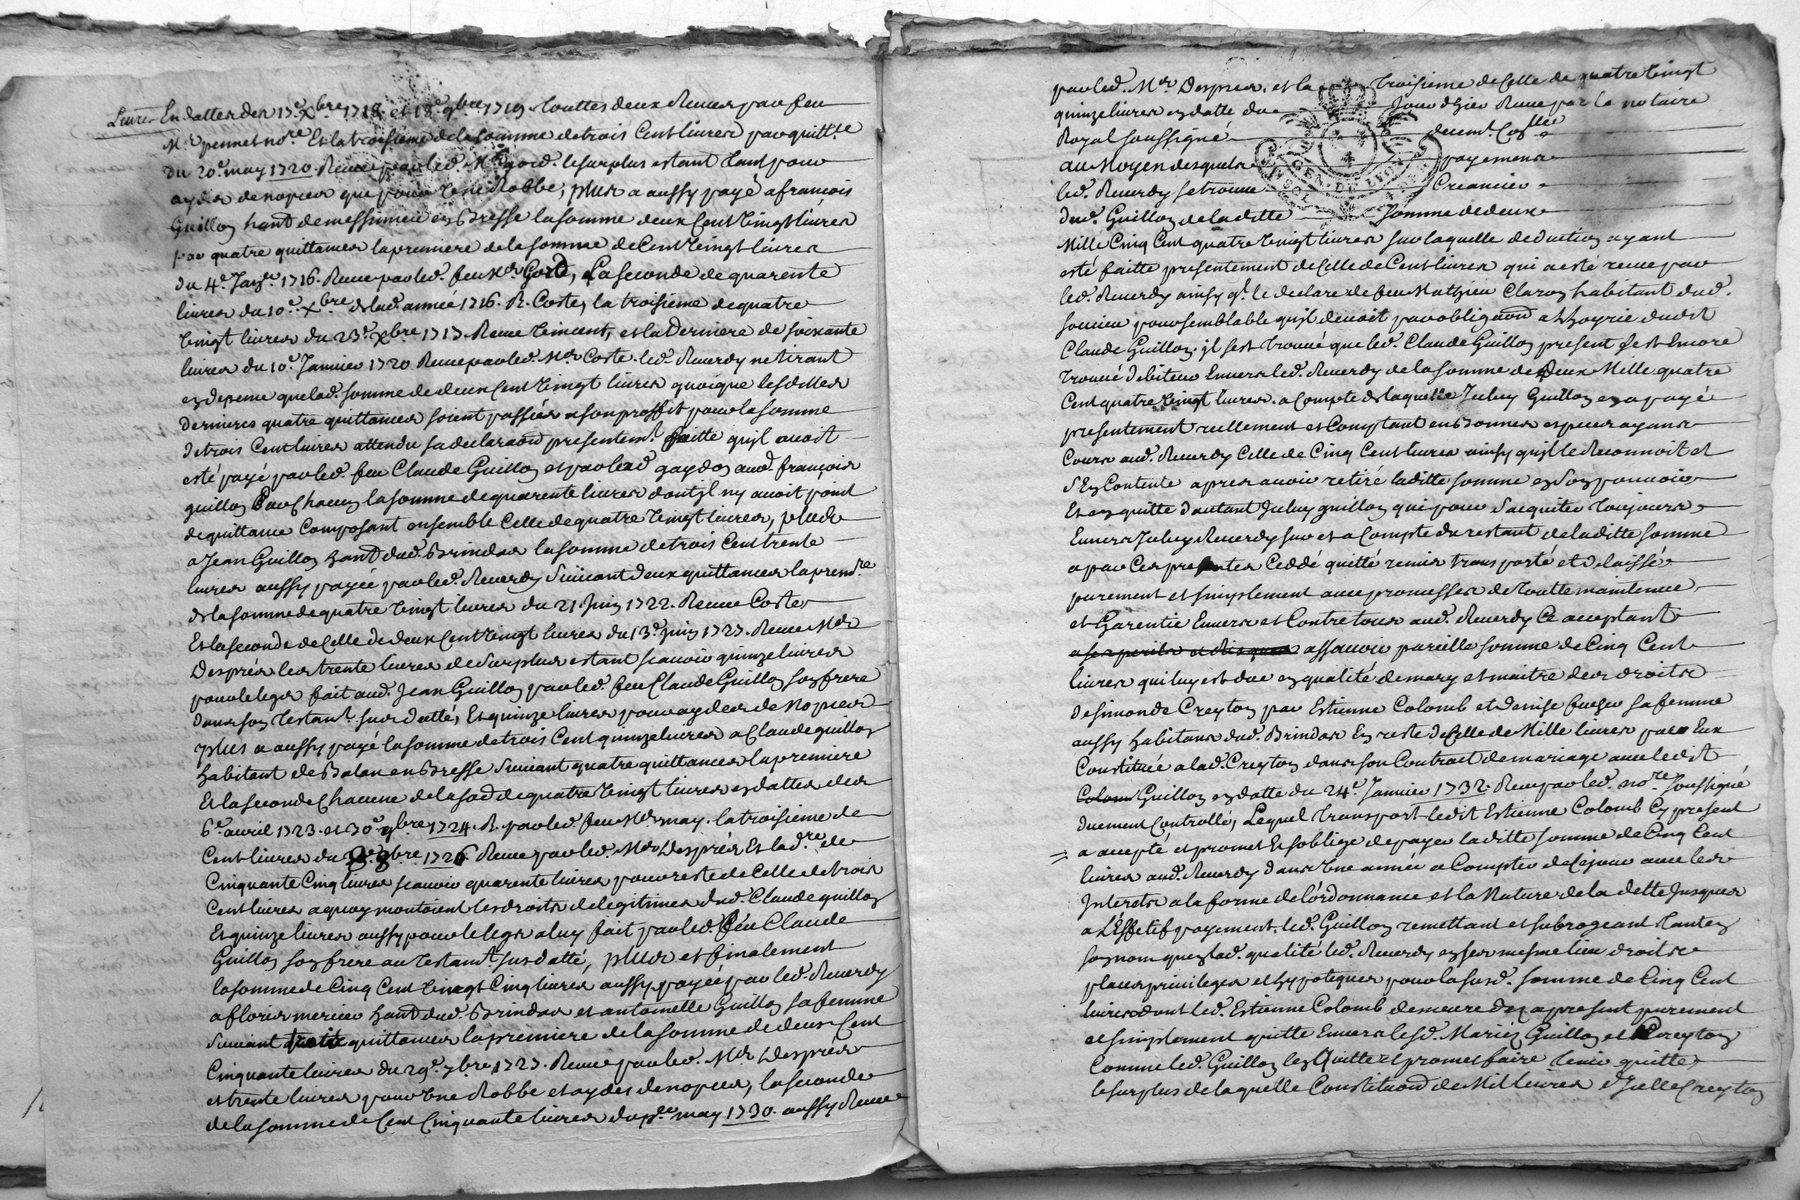 Livres En dattes des 17e Xbre 1718 et 18e 9bre 1719. touttes deux Receues par feu
Me pennet nore Et la troisieme de la somme de trois Cent livres par quittce
du 20e may 1720. Receue par led. Me gord. le surplus estant tant pour
aydes de nopces que pour Une Robbe, plus a aussy payé a françois
Guillon habt de messimieu en Bresse la somme deux Cent Vingt livres
par quatre quittances la premiere de la somme de Cent Vingt livres
du 4e Janr 1716. Receue par led. feu Me Gord, La seconde de quarente
livres du 10e Xbre de lad. année 1716. R. Coste, la troisieme de quatre
Vingt livres du 23e Xbre 1717. Receue Vincent, et la derniere de soixante
livres du 10e Janvier 1720 Receue par led. Me Coste. led. Reverdy ne tirant
en depense que lad. somme de deux Cent Vingt livres quoique lesdittes
dernieres quatre quittances soient passées a son proffit pour la somme
de trois Cent livres attendu sa declaraon presentemt faitte qu'jl avoit
esté payé par led. feu Claude Guillon et par lad. gaydon aud. françois
guillon Par Chacun la somme de quarente livres dont jl ny avoit point
de quittance Composant ensemble Celle de quatre Vingt livres, plus
a Jean Guillon habt dud. Brindas la somme de trois Cent trente
livres aussy payée par led. Reverdy Suivant deux quittances la premre
de la somme de quatre Vingt livres du 21. Juin 1722. Receue Coste
Et la seconde de Celle de deux Cent Vingt livres du 13e Juin 1727. Receue Me
Desprès les trente livres de surplus estant scavoir quinze livres
pour le legs fait aud. Jean Guillon par led. feu Claude Guillon son frere
dans son testamt sus datté, Et quinze livres pour aydes de Nopces
plus a aussy payé la somme de trois Cent quinze livres a Claude guillon
habitant de Balan en Bresse Suivant quatre quittances la premiere
Et la seconde Chacune de la som de quatre Vingt livres en dattes des
6e avril 1723. et 30e 9bre 1724. R. par led. feu Me may. la troisieme de
Cent livres du 9bre 1726 Receue par led. Me Desprès Et la dre de
Cinquante Cinq livres scavoir quarente livres pour reste de Celle de trois
Cent livres a quoy montoient les droits de legitimes dud. Claude guillon
Et quinze livres aussy pour le legs a luy fait par led. feu Claude
Guillon son frere au testamt sus datté, plus et finalement
la somme de Cinq Cent Vingt Cinq livres aussy payée par led. Reverdy
a floris mercier habt dud. Brindas et antoinette Guillon sa femme
Suivant trois quittances la premiere de la somme de deux Cent
Cinquante livres du 29e 7bre 1727. Receue par led. Me Desprès
et trente livres pour Une Robbe et aydes de nopces, la seconde
de la somme de Cent Cinquante livres du may 1730. aussy Receue
par led. Me Desprès. et la troisieme de Celle de quatre Vingt
quinze livres en datte du Jour d'hier Receue par le notaire
Royal soussigné duemt Collée
Au Moyen desquels payements
led. Reverdy se trouve Creancier
dud. Guillon de laditte somme de deux
Mille Cinq Cent quatre Vingt livres sur laquelle deduction ayant
esté faitte presentement de Celle de Cent livres qui a esté receue par
led. Reverdy ainsy ql le declare de feu Mathieu Claron habitant dud.
pour semblable qu'jl devoit par obligaon a hoyrie dudit
Claude Guillon. jl s'est trouvé que led. Claude Guillon present s'est Encore
trouvé debiteur Envers led. Reverdy de la somme de deux Mille quatre
Cent quatre Vingt livres. a Compte de laquelle Iceluy Guillon en a payé
presentement reellement et Comptant en bonnes especes ayant
Cours aud. Reverdy Celle de Cinq Cent livres ainsy qu'jl le Reconnoit et
s'En Contente apres avoir retiré laditte somme en son pouvoir
Et en quitte d'autant Iceluy guillon qui pour s'acquiter toujours
Envers Iceluy Reverdy sur et a Compte du restant de laditte somme
a par Ces presentes Ceddé quitté remis transporté et delaissé
purement et simplement avec promesses de toutte maintenue
et Garentie Envers et Contre tous aud. Reverdy Ce acceptant
a ses perils et risques assavoir pareille somme de Cinq Cent
livres qui luy est due en qualité de mary et maitre des droits
de Simonde Creyton par Estienne Colomb et denise sa femme
aussy habitans dud. Brindas En reste de Celle de Mille livres par Eux
Constituée a lad. Creyton dans son Contract de mariage avec ledit
Colomb Guillon en datte du 24e Janvier 1732. Receu par led. nore soussigné
duement Controllé, Lequel transport ledit Estienne Colomb Cy present
a accepté et promet Et s'oblige de payer laditte somme de Cinq Cent
livres aud. Reverdy dans Une année a Compter de Cejour avec les
Interets a la forme de l'ordonnance et la Nature de la dette Jusques
a l'Effetif payement. led. Guillon remettant et subrogeant tant en
son nom que en lad. qualité led. Reverdy en son mesme lieu droits
places privileges et hypoteques pour lasusd. somme de Cinq Cent
livres dont led. Estienne Colomb demeure des a present purement
et simplement quitte Envers lesd. Mariés Guillon et Creyton
Comme led. Guillon l'en Quitte et promet faire tenir quitte
le surplus de laquelle Constituaon de Mil livres Icelle Creyton